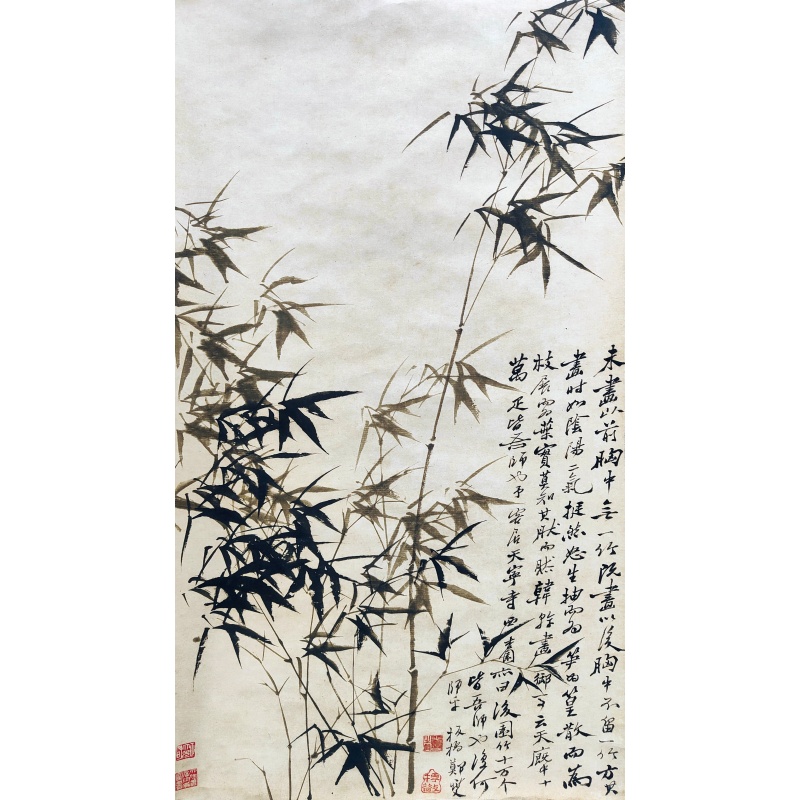 未畫以前胸中無一竹既畫以後胸中不留一竹方其
畫時如陰陽二氣挺然怒生抽而為笋為篁散而為
枝展而為葉實莫知其然而然韓幹畫御馬云天廐中十
萬疋皆吾師也予客居天寧寺西亦曰後園竹十万个
皆吾師也復何
師乎板橋鄭燮